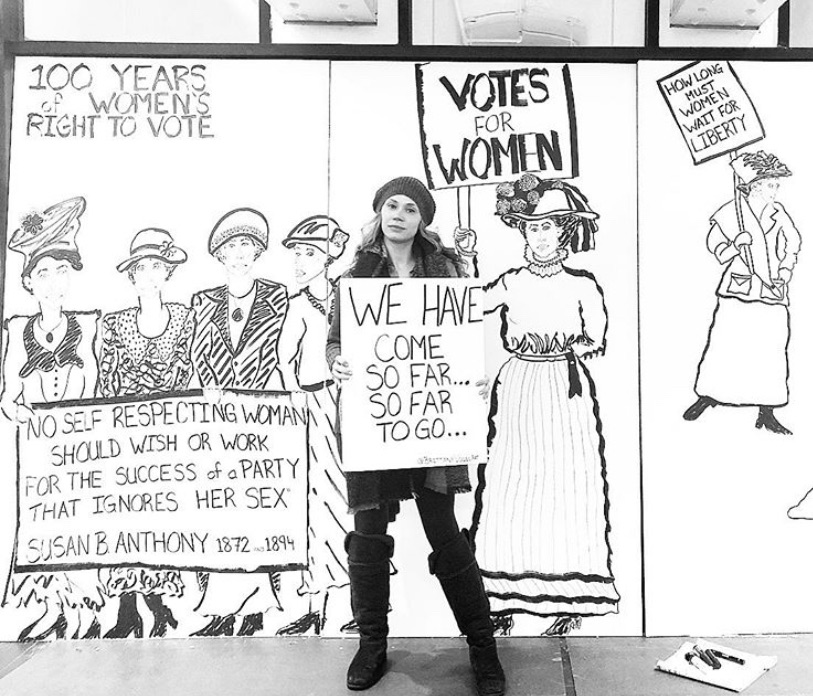 100 YEARS
of WOMEN'S
RIGHT TO VOTE
VOTES
FOR
WOMEN
HOW LONG
MUST
WOMEN
WAIT FOR
LIBERTY
WE HAVE
COME
SO FAR...
SO FAR
TO GO...
NO SELF RESPECTING WOMAN
SHOULD WISH OR WORK
FOR THE SUCCESS of a PARTY
THAT IGNORES HER SEX"
SUSAN B. ANTHONY 1872 and 1894